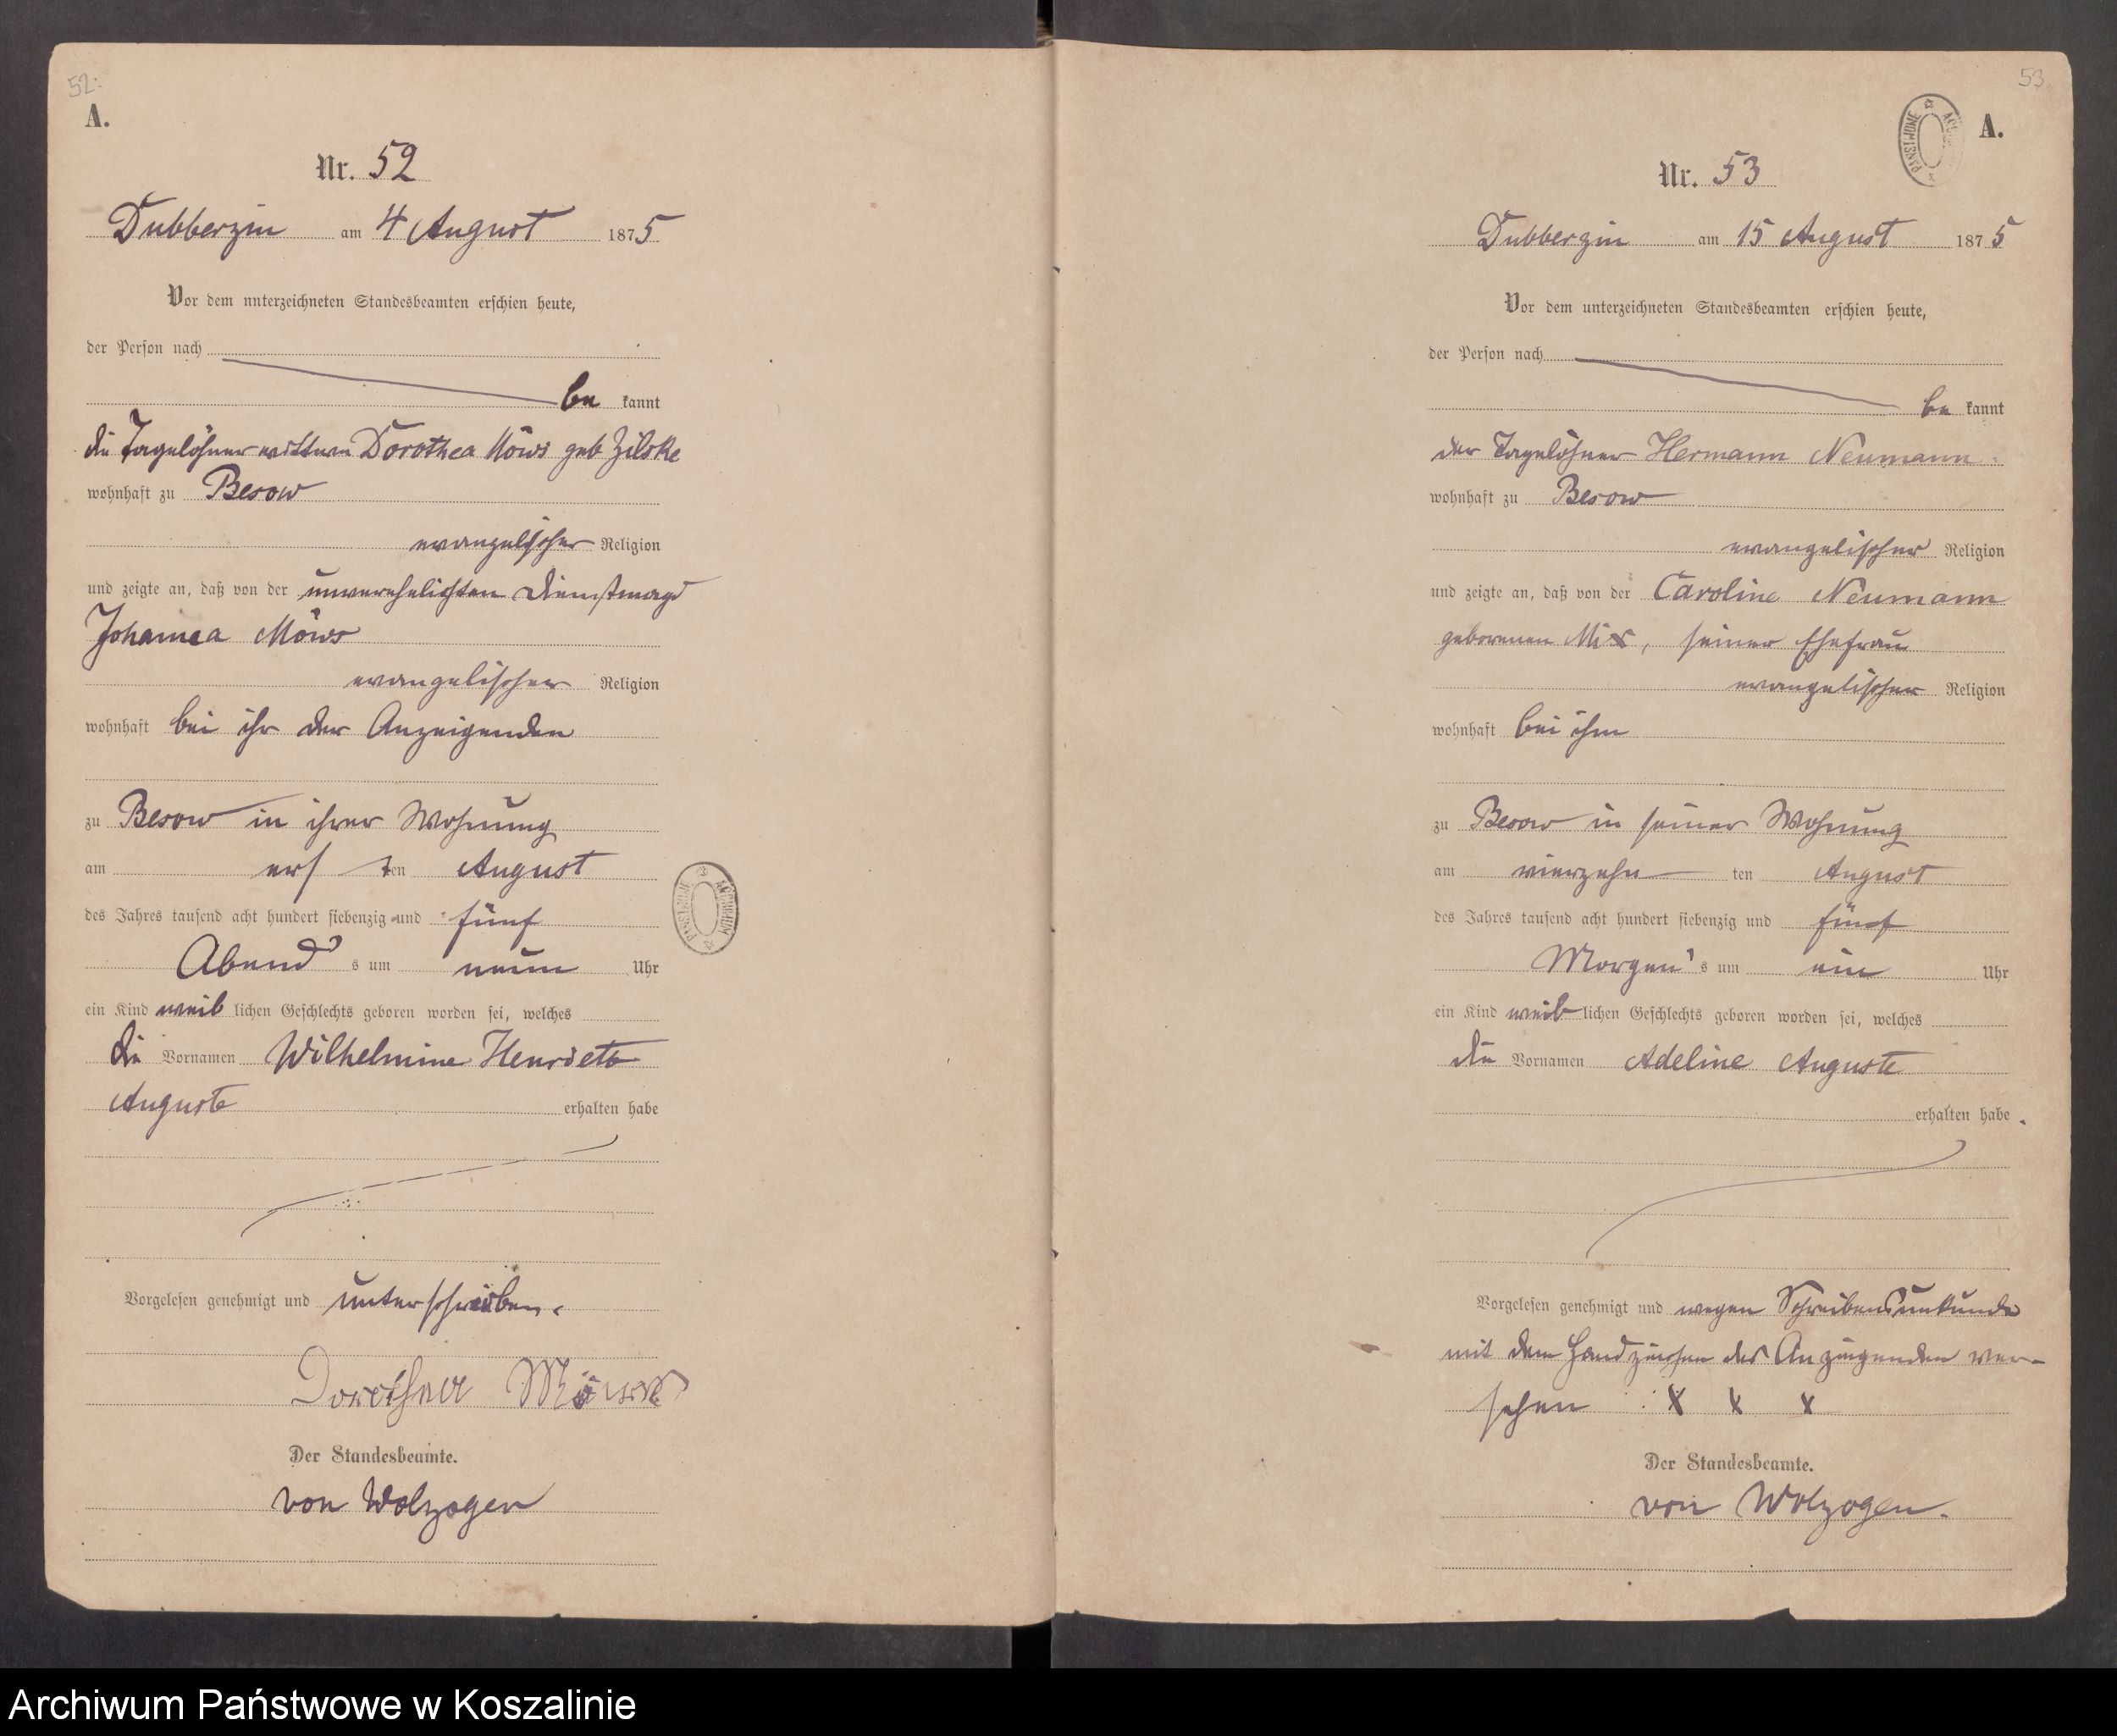 52.
A.
Nr. 52
Dubberzin am 4 August 1875
Vor dem unterzeichneten Standesbeamten erschien heute,
der Person nach
be kannt
die Tagelöhnerwittwe Dorothea Möws geb Zilske
wohnhaft zu Besow
evangelischer Religion
und zeigte an, daß von der unverehelichten Dienstmagd
Johanna Möws
evangelischer Religion
wohnhaft bei ihr der Anzeigenden
zu Besow in ihrer Wohnung
am ersten August
des Jahres tausend acht hundert siebenzig und fünf
Abend's um neun Uhr
ein Kind weiblichen Geschlechts geboren worden sei, welches
die Vornamen Wilhelmine Henriette
Auguste erhalten habe
Vorgelesen genehmigt und unterschrieben.
Dorothea Möws
Der Standesbeamte.
von Wolzogen
ARCHIWUM PAŃSTWOWE
53
A.
ARCHIWUM PAŃSTWOWE
Nr. 53
Dubberzin am 15 August 1875
Vor dem unterzeichneten Standesbeamten erschien heute,
der Person nach
be kannt
der Tagelöhner Hermann Neumann
wohnhaft zu Besow
evangelischer Religion
und zeigte an, daß von der Caroline Neumann
geborenen Mix, seiner Ehefrau
evangelischer Religion
wohnhaft bei ihm
zu Besow in seiner Wohnung
am vierzehn ten August
des Jahres tausend acht hundert siebenzig und fünf
Morgen's um ein Uhr
ein Kind weiblichen Geschlechts geboren worden sei, welches
die Vornamen Adeline Auguste
erhalten habe.
Vorgelesen genehmigt und wegen Schreibensunkunde
mit dem Handzeichen des Anzeigenden ver-
sehen X X X
Der Standesbeamte.
von Wolzogen.
Archiwum Państwowe w Koszalinie